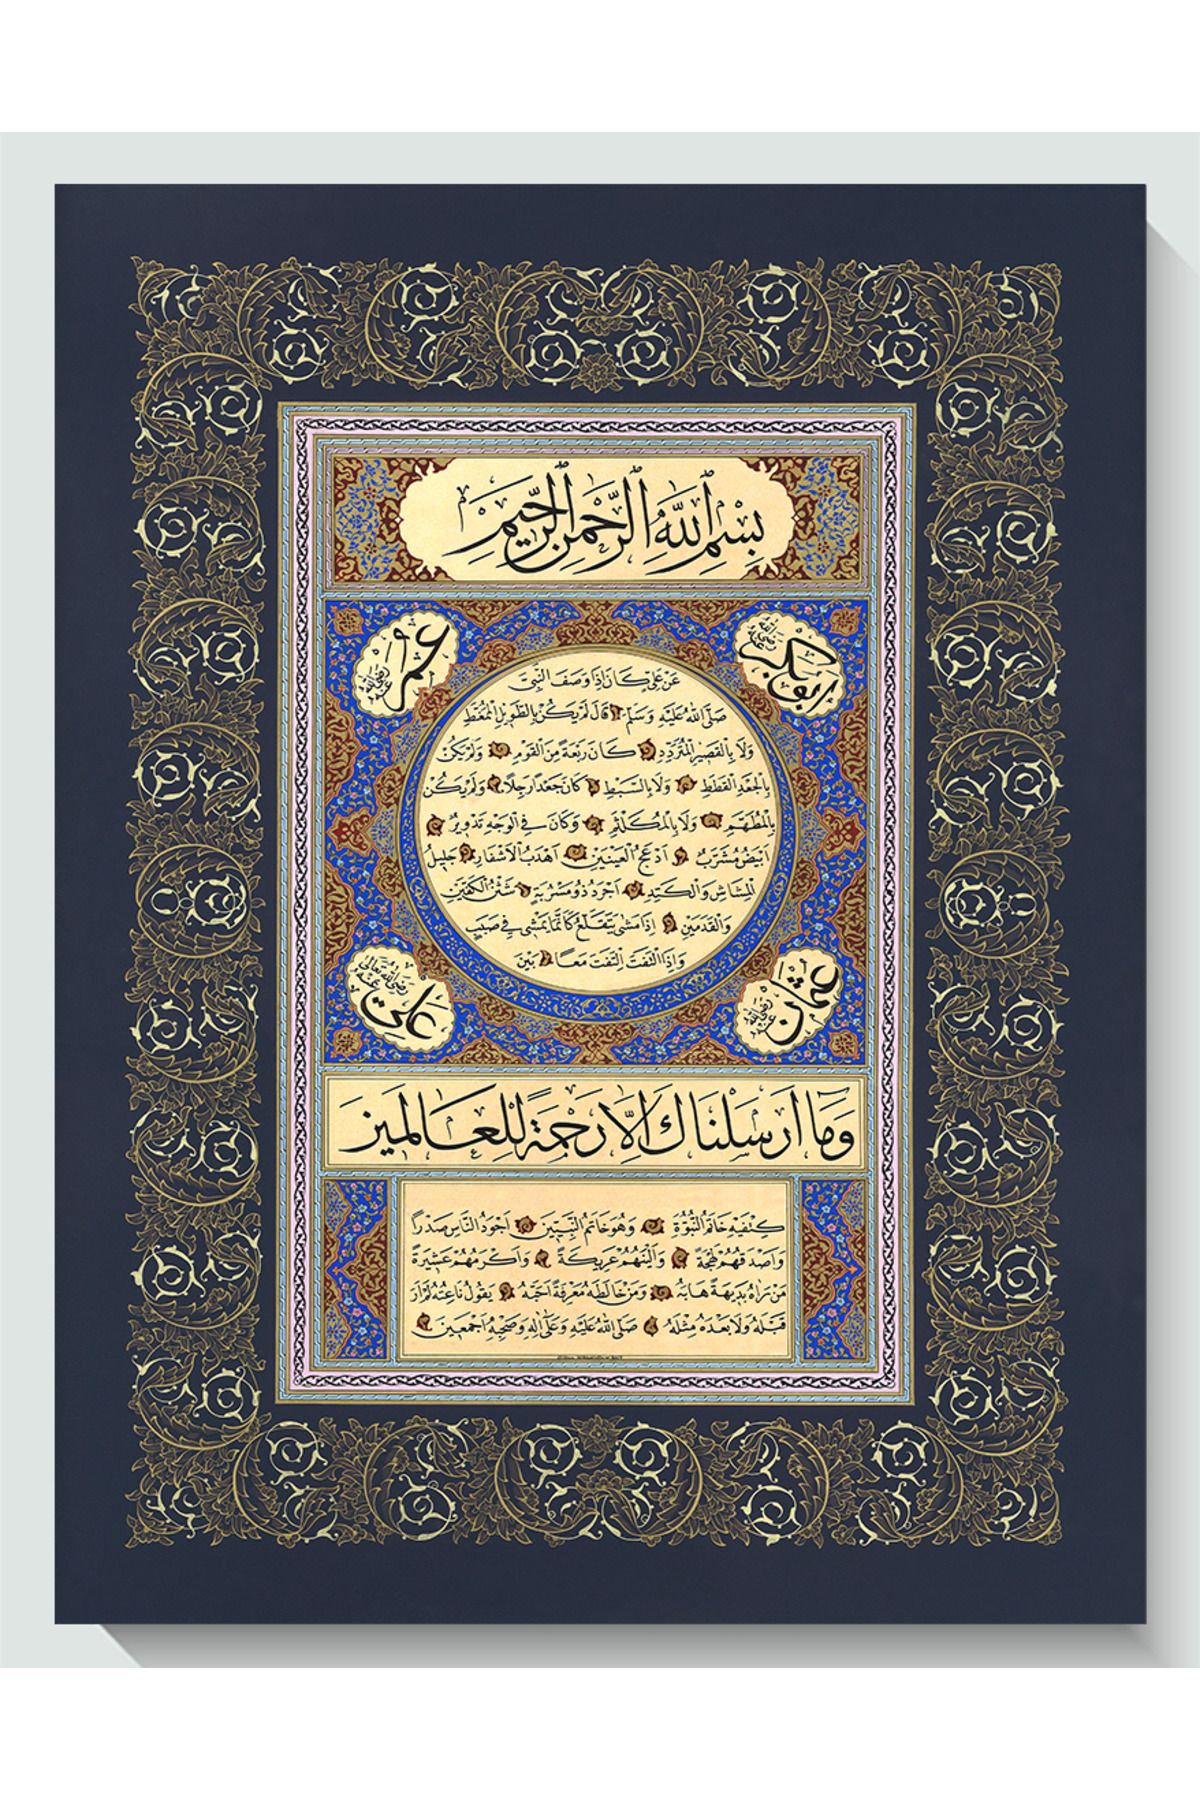 بِسْمِ اللّٰهِ الرَّحْمٰنِ الرَّحِيمِ
ابوبكر رضي الله عنه
عمر رضي الله عنه
عَنْ عَلِيٍّ كَانَ اِذَا وَصَفَ النَّبِيَّ
صَلَّى اللّٰهُ عَلَيْهِ وَسَلَّمَ قَالَ لَمْ يَكُنْ بِالطَّوِيلِ الْمُمَّغَطِ
وَلَا بِالْقَصِيرِ الْمُتَرَدِّدِ كَانَ رَبْعَةً مِنَ الْقَوْمِ وَلَمْ يَكُنْ
بِالْجَعْدِ الْقَطَطِ وَلَا بِالسَّبْطِ كَانَ جَعْدًا رَجِلًا وَلَمْ يَكُنْ
بِالْمُطَهَّمِ وَلَا بِالْمُكَلْثَمِ وَكَانَ فِي الْوَجْهِ تَدْوِيرٌ
اَبْيَضُ مُشْرَبٌ اَدْعَجُ الْعَيْنَيْنِ اَهْدَبُ الْاَشْفَارِ جَلِيلُ
الْمُشَاشِ وَالْكَتَدِ اَجْرَدُ ذُو مَسْرُبَةٍ شَثْنُ الْكَفَّيْنِ
وَالْقَدَمَيْنِ اِذَا مَشَى يَتَقَلَّعُ كَاَنَّمَا يَمْشِي فِي صَبَبٍ
وَاِذَا الْتَفَتَ الْتَفَتَ مَعًا بَيْنَ
عثمان رضي الله عنه
علي رضي الله تعالى عنه
وَمَا اَرْسَلْنَاكَ اِلَّا رَحْمَةً لِلْعَالَمِينَ
كَتِفَيْهِ خَاتَمُ النُّبُوَّةِ وَهُوَ خَاتَمُ النَّبِيِّينَ اَجْوَدُ النَّاسِ صَدْرًا
وَاَصْدَقُهُمْ لَهْجَةً وَاَلْيَنُهُمْ عَرِيكَةً وَاَكْرَمُهُمْ عَشِيرَةً
مَنْ رَاٰهُ بَدِيهَةً هَابَهُ وَمَنْ خَالَطَهُ مَعْرِفَةً اَحَبَّهُ يَقُولُ نَاعِتُهُ لَمْ اَرَ
قَبْلَهُ وَلَا بَعْدَهُ مِثْلَهُ صَلَّى اللّٰهُ عَلَيْهِ وَعَلٰى اٰلِهِ وَصَحْبِهِ اَجْمَعِينَ